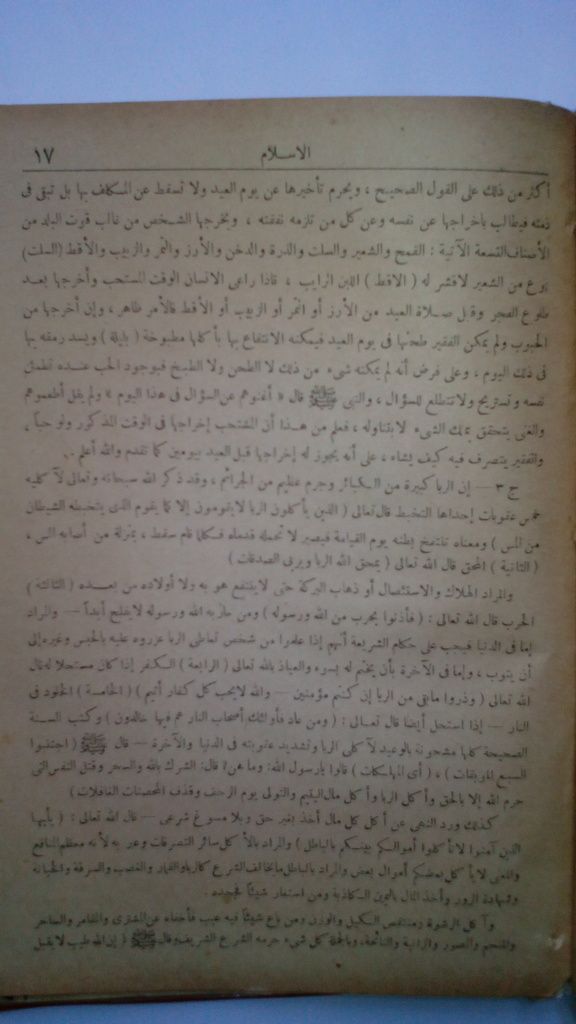 ١٧ الاسلام
أكثر من ذلك على القول الصحيح ، ويحرم تأخيرها عن يوم العيد ولا تسقط عن المكلف بها بل تبقى فى
ذمته فيطالب باخراجها عن نفسه وعن كل من تلزمه نفقته ، ويخرجها الشخص من غالب قوت البلد من
الأصناف التسعة الآتية : القمح والشعير والسلت والذرة والدخن والأرز والتمر والزبيب والأقط (السلت)
نوع من الشعير لاقشر له ( الاقط ) اللبن الرايب ، فاذا راعى الانسان الوقت المستحب وأخرجها بعد
طلوع الفجر وقبل صلاة العيد من الأرز أو التمر أو الزبيب أو الأقط فالأمر ظاهر ، وإن أخرجها من
الحبوب ولم يمكن الفقير طحنها فى يوم العيد فيمكنه الانتفاع بها بأكلها مطبوخة ( بليلة ) ويسد رمقه بها
فى ذلك اليوم ، وعلى فرض أنه لم يمكنه شىء من ذلك لا الطحن ولا الطبخ فبوجود الحب عنده تطمئن
نفسه وتستريح ولا تتطلع للسؤال ، والنبى ﷺ قال « أغنوهم عن السؤال فى هذا اليوم » ولم يقل أطعموهم
والغنى يتحقق بملك الشىء لا بتناوله ، فعلم من هذا أن المستحب إخراجها فى الوقت المذكور ولو حباً ،
والفقير يتصرف فيه كيف يشاء ، على أنه يجوز له إخراجها قبل العيد بيومين كما تقدم والله أعلم .
ج ٣ — إن الربا كبيرة من الكبائر وجرم عظيم من الجرائم ، وقد ذكر الله سبحانه وتعالى لآكليه
خمس عقوبات إحداها التخبط قال تعالى ( الذين يأكلون الربا لا يقومون إلا كما يقوم الذى يتخبطه الشيطان
من المس ) ومعناه تنتفخ بطنه يوم القيامة فيصير لا تحمله قدماه فكلما قام سقط ، بمنزلة من أصابه المس ،
( الثانية ) المحق قال الله تعالى ( يمحق الله الربا ويربى الصدقات )
والمراد الهلاك والاستئصال أو ذهاب البركة حتى لا ينتفع هو به ولا أولاده من بعده ( الثالثة )
الحرب قال الله تعالى : ( فأذنوا بحرب من الله ورسوله ) ومن حاربه الله ورسوله لا يفلح أبداً — والمراد
إما فى الدنيا فيجب على حكام الشريعة أنهم إذا علموا من شخص تعاطى الربا عزروه عليه بالحبس وغيره إلى
أن يتوب ، وإما فى الآخرة بأن يختم له بسوء والعياذ بالله تعالى ( الرابعة ) الكفر إذا كان مستحلا له قال
الله تعالى ( وذروا مابقى من الربا إن كنتم مؤمنين — والله لا يحب كل كفار أثيم ) ( الخامسة ) الخلود فى
النار — إذا استحل أيضا قال تعالى : ( ومن عاد فأولئك أصحاب النار هم فيها خالدون ) وكتب السنة
الصحيحة كلها مشحونة بالوعيد لآكلى الربا وتشديد عقوبته فى الدنيا والآخرة — قال ﷺ ( اجتنبوا
السبع الموبقات ) ، ( أى المهلكات ) قالوا يارسول الله: وماهن؟ قال: الشرك بالله والسحر وقتل النفس التى
حرم الله إلا بالحق وأكل الربا وأكل مال اليتيم والتولى يوم الزحف وقذف المحصنات الغافلات )
كذلك ورد النهى عن أكل كل مال أخذ بغير حق وبلا مسوغ شرعى — قال الله تعالى : ( يأيها
الذين آمنوا لا تأكلوا أموالكم بينكم بالباطل ) والمراد بالأكل سائر التصرفات وعبر به لأنه معظم المنافع
والمعنى لا يأكل بعضكم أموال بعض والمراد بالباطل مايخالف الشرع كالربا والقمار والغصب والسرقة والخيانة
وشهادة الزور وأخذ المال باليمين الكاذبة ومن استعار شيئاً فجحده .
وآكل الرشوة ومنتقص الكيل والوزن ومن باع شيئاً فيه عيب فأخفاه عن المشترى والمقامر والساحر
والمنجم والمصور والزانية والنائحة، وبالجملة كل شىء حرمه الشرع الشريف قال ﷺ ( إن الله طيب لا يقبل